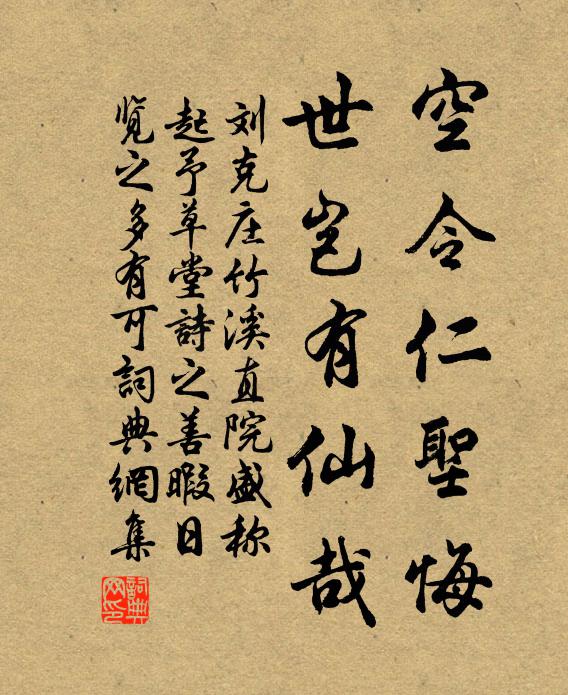 空令仁聖悔
世岂有仙哉
刘克庄竹溪直院盛称
起予草堂詩之善暇日
览之多有可詞典網集
詞典网印